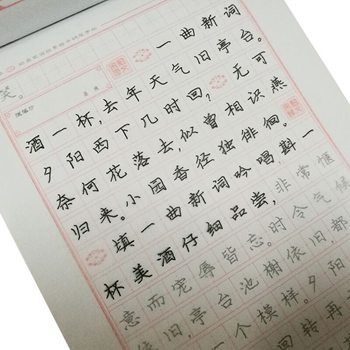 一曲新词
酒一杯，去年天气旧亭台。
夕阳西下几时回，无可
奈何花落去，似曾相识燕
归来。小园香径独徘徊。
填一曲新词吟唱斟一
杯美酒仔细品尝，非常惬
意而宠辱皆忘。时令气候
依旧，亭台池榭依旧，都
一个模样。夕阳
回转再